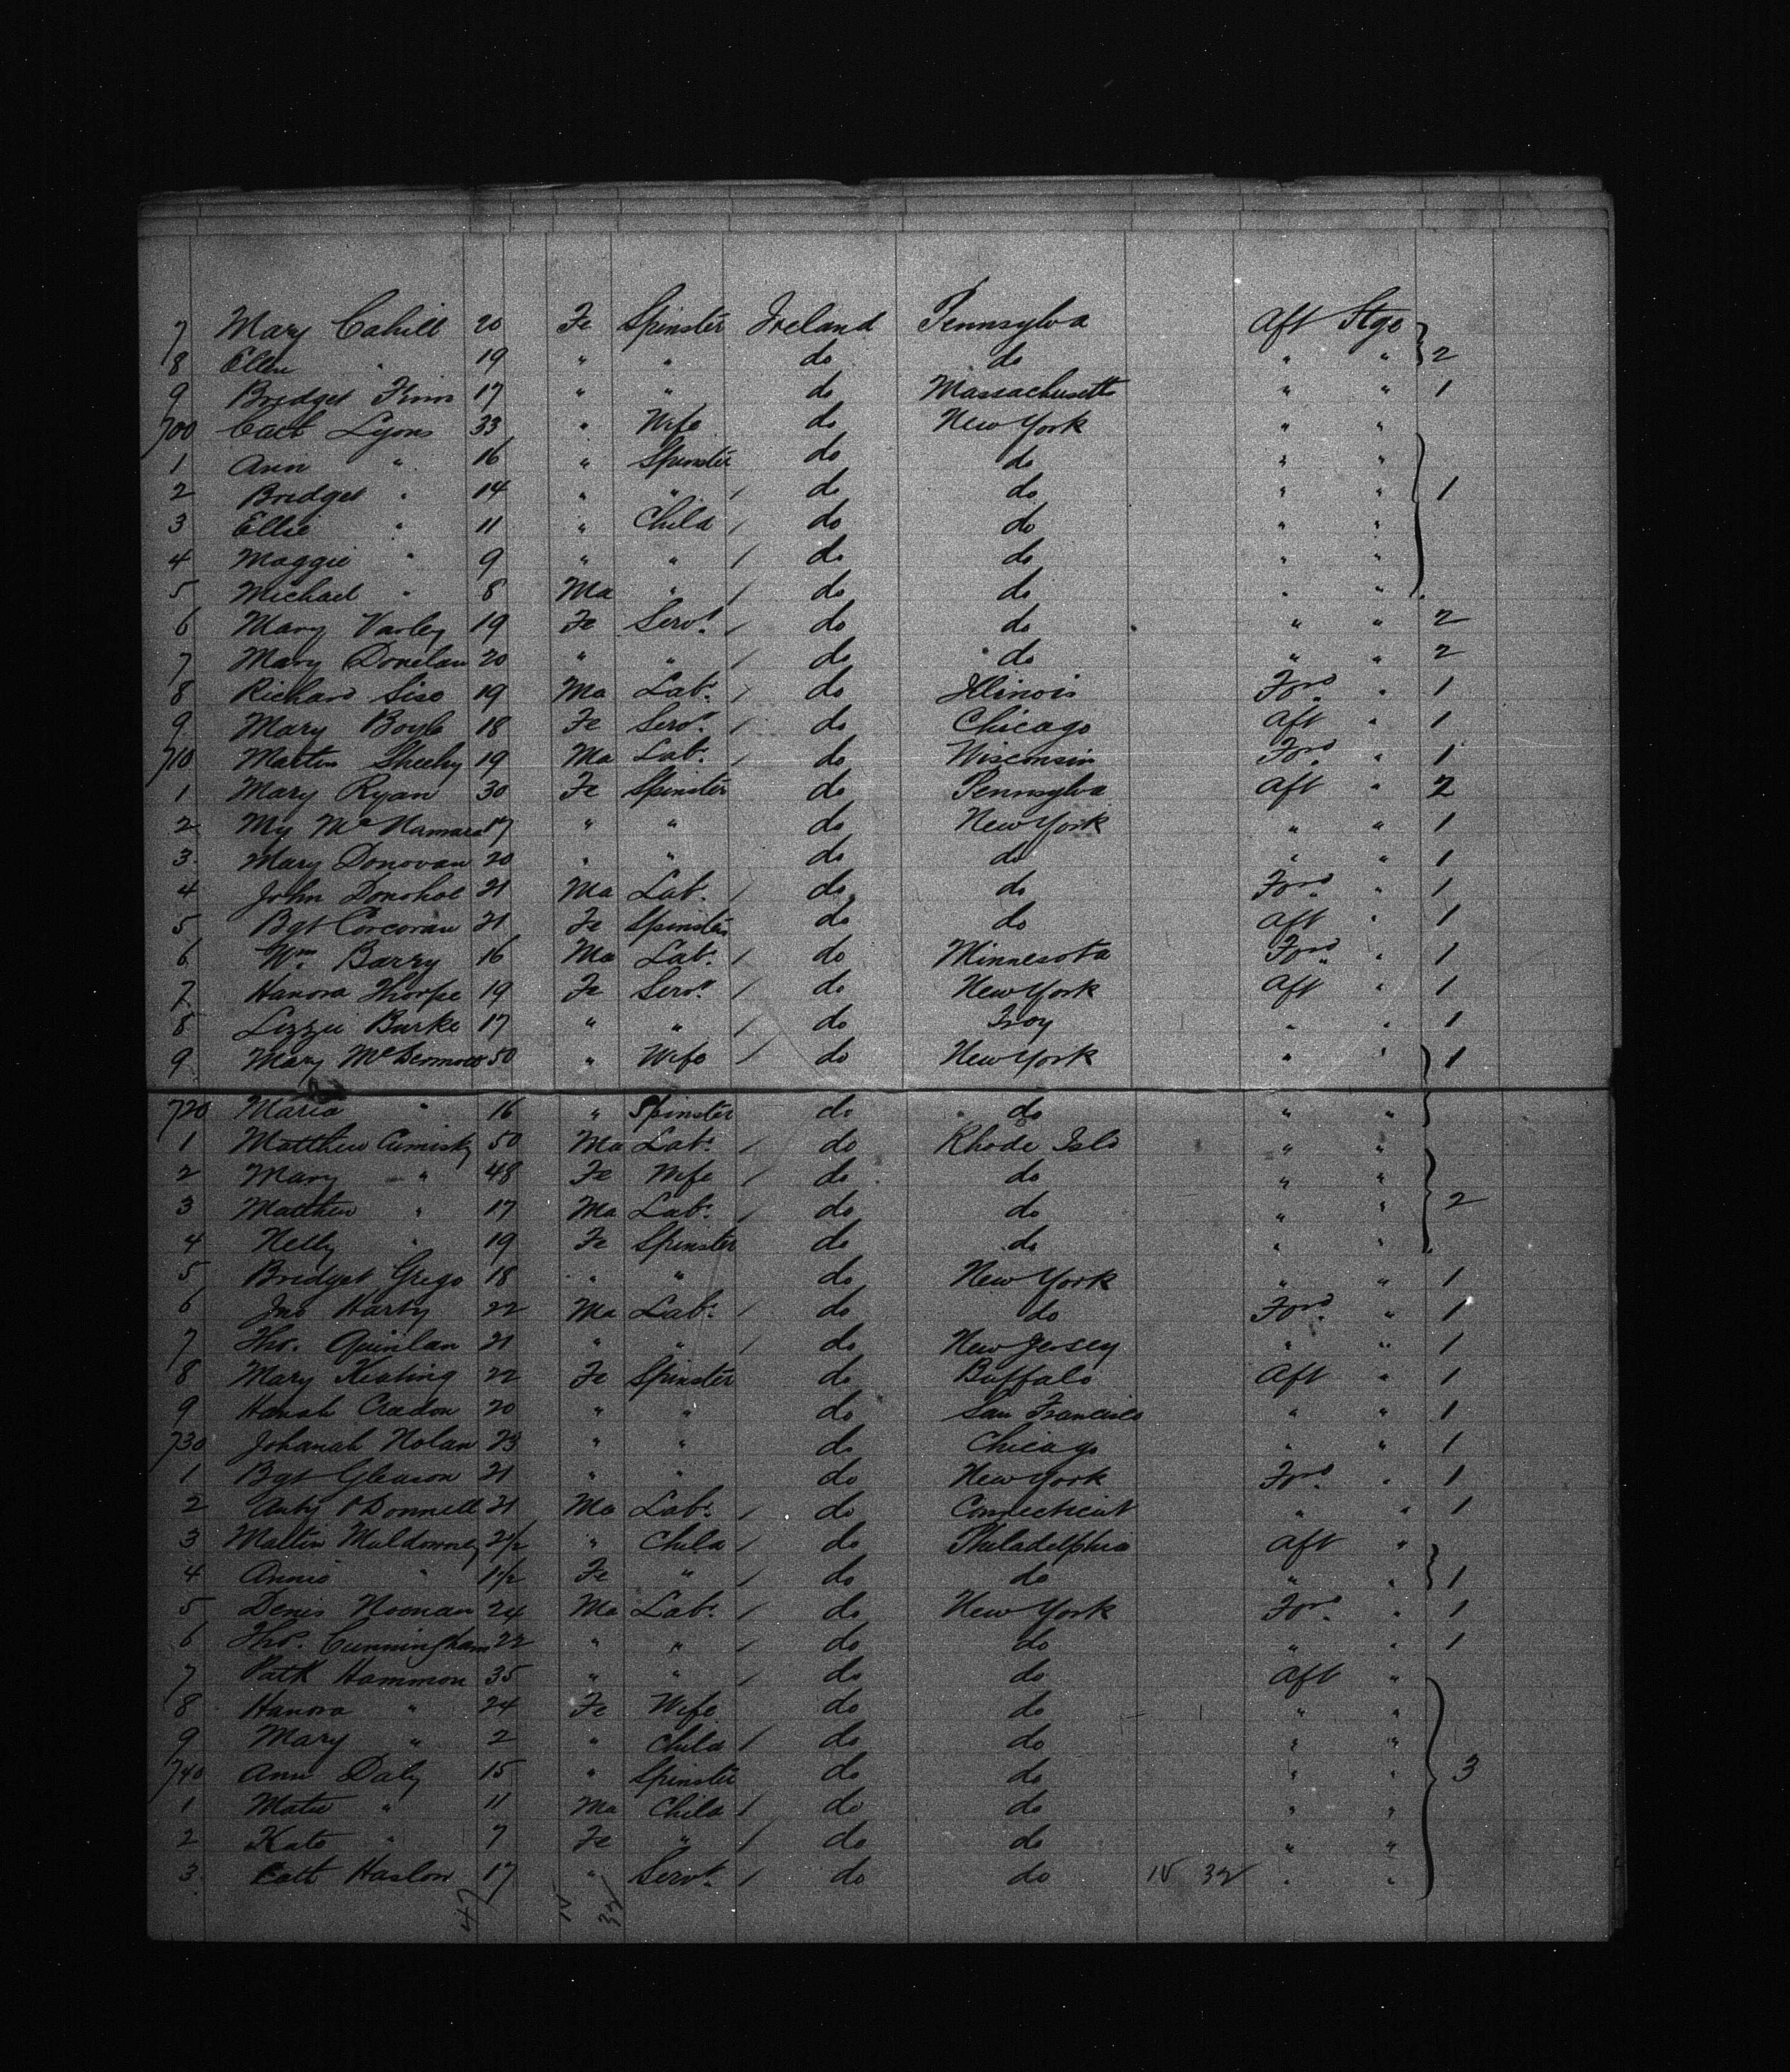 7 Mary Cahill 20 Fe Spinster Ireland Pennsylva Aft Stge
8 Ellen " 19 " " do do " " 2
9 Bridget Finn 17 " " do Massachusetts " " 1
700 Cath Lyons 33 " Wife do New York " "
1 Ann " 16 " Spinster do do " "
2 Bridget " 14 " " / do do " " 1
3 Ellie " 11 " Child / do do " "
4 Maggie " 9 " " / do do " "
5 Michael " 8 Ma " / do do " "
6 Mary Varley 19 Fe Servt / do do " " 2
7 Mary Donelan 20 " " / do do " " 2
8 Richard Siso 19 Ma Labr / do Illinois Ford " 1
9 Mary Boyle 18 Fe Servt / do Chicago Aft " 1
710 Martin Sheehy 19 Ma Labr / do Wisconsin Ford " 1
1 Mary Ryan 30 Fe Spinster do Pennsylva Aft " 2
2 My McNamara 17 " " do New York " " 1
3 Mary Donovan 20 " " do do " " 1
4 John Donohoe 21 Ma Labr / do do Ford " 1
5 Bgt Corcoran 21 Fe Spinster do do Aft " 1
6 Wm Barry 16 Ma Labr / do Minnesota Ford " 1
7 Hanora Thorpe 19 Fe Servt / do New York Aft " 1
8 Lizzie Burke 17 " " / do Troy " " 1
9 Mary McDermott 50 " Wife / do New York " " 1
720 Maria " 16 " Spinster do do " "
1 Matthew Cumisky 50 Ma Labr / do Rhode Isld " "
2 Mary " 48 Fe Wife / do do " "
3 Matthew " 17 Ma Labr / do do " " 2
4 Nelly " 19 Fe Spinster do do " "
5 Bridget Grego 18 " " do New York " " 1
6 Jno Harty 22 Ma Labr / do do Ford " 1
7 Tho. Quinlan 21 " " / do New Jersey " " 1
8 Mary Keating 22 Fe Spinster do Buffalo Aft " 1
9 Hanah Creedon 20 " " do San Francisco " " 1
730 Johanah Nolan 23 " " do Chicago " " 1
1 Bgt Gleason 21 " " do New York Ford " 1
2 Anty O'Donnell 21 Ma Labr / do Connecticut " " 1
3 Martin Muldowney 2 1/2 " Child / do Philadelphia Aft "
4 Annie " 1 1/2 Fe " / do do " " 1
5 Denis Noonan 24 Ma Labr / do New York Ford " 1
6 Tho. Cunningham 22 " " / do do " " 1
7 Patk Hammon 35 " " / do do Aft "
8 Hanora " 24 Fe Wife do do " "
9 Mary " 2 " Child / do do " "
740 Ann Daly 15 " Spinster do do " " 3
1 " 11 Ma Child / do do " "
2 Kate " 7 Fe " / do do " "
3 Cath Haslon 17 " Servt / do do 15 32 " "
47 15 32